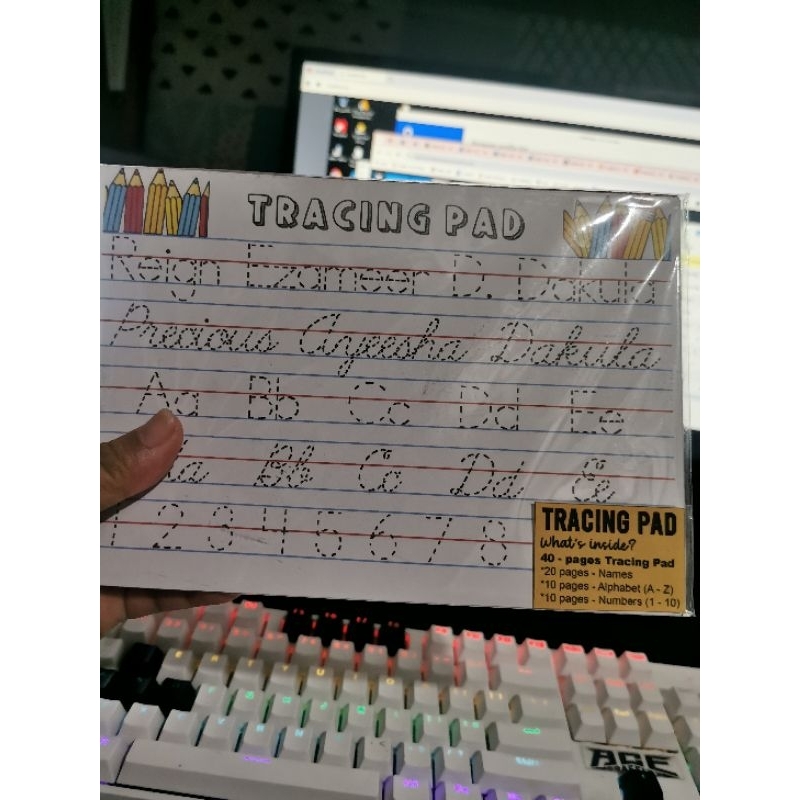 TRACING PAD
Reign Ezameer D. Dakula
Precious Ayeesha Dakula
Aa Bb Cc Dd Ee
Bb Cc Dd Ee
1 2 3 4 5 6 7 8
TRACING PAD
What's inside?
40 - pages Tracing Pad
*20 pages - Names
*10 pages - Alphabet (A - Z)
*10 pages - Numbers (1 - 10)